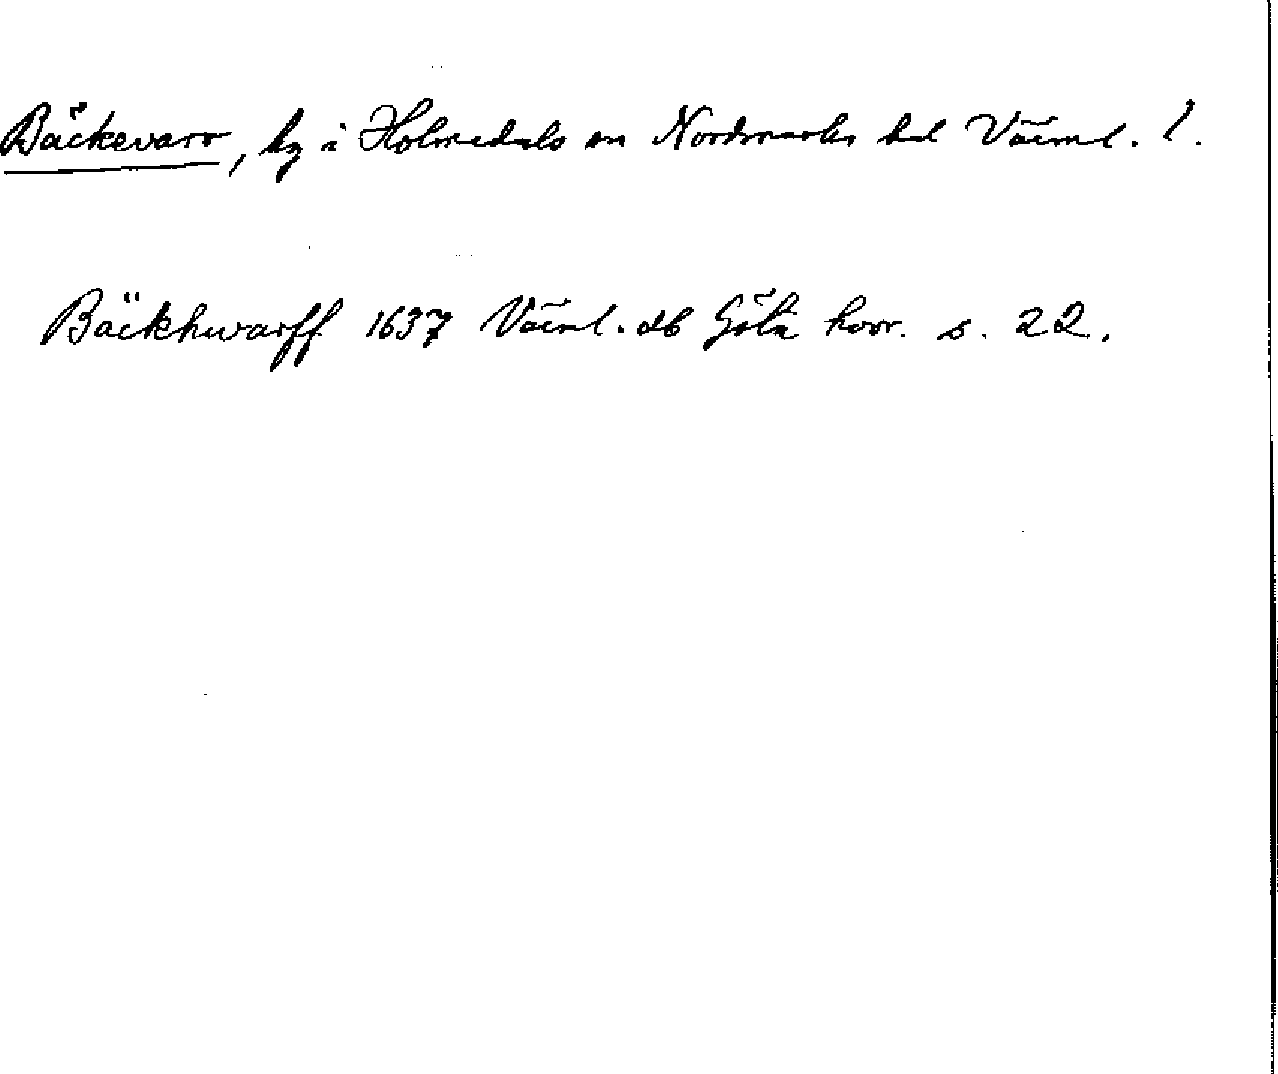 Bäckevarv, by i Holmedals sn Nordmarks hd Värml. l.
Bäckhwarff 1637 Värml. db Göta hovr. s. 22.